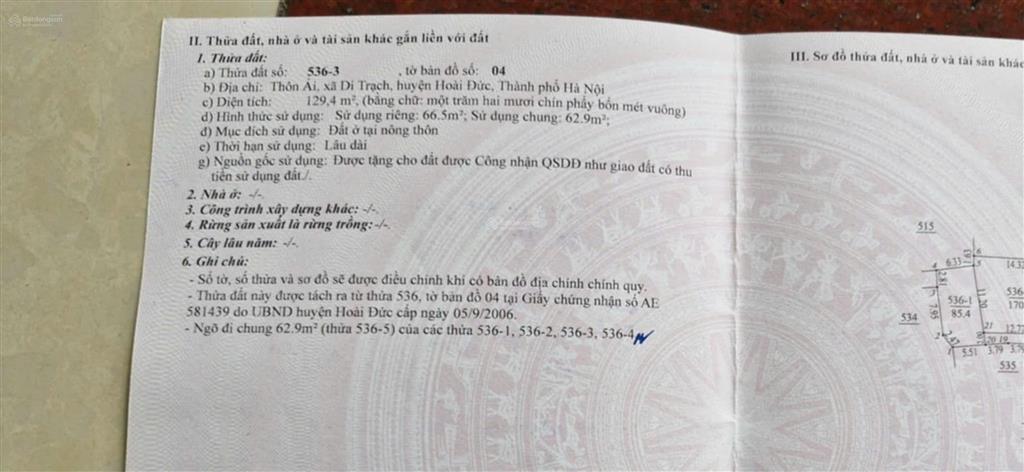 Batdongsan
II. Thửa đất, nhà ở và tài sản khác gắn liền với đất
1. Thửa đất:
a) Thửa đất số: 536-3 , tờ bản đồ số: 04
b) Địa chỉ: Thôn Ải, xã Di Trạch, huyện Hoài Đức, Thành phố Hà Nội
c) Diện tích: 129,4 m², (bằng chữ: một trăm hai mươi chín phẩy bốn mét vuông)
d) Hình thức sử dụng: Sử dụng riêng: 66.5m²; Sử dụng chung: 62.9m²;
đ) Mục đích sử dụng: Đất ở tại nông thôn
e) Thời hạn sử dụng: Lâu dài
g) Nguồn gốc sử dụng: Được tặng cho đất được Công nhận QSDĐ như giao đất có thu
tiền sử dụng đất./.
2. Nhà ở: -/-.
3. Công trình xây dựng khác: -/-.
4. Rừng sản xuất là rừng trồng: -/-.
5. Cây lâu năm: -/-.
6. Ghi chú:
- Số tờ, số thửa và sơ đồ sẽ được điều chỉnh khi có bản đồ địa chính chính quy.
- Thửa đất này được tách ra từ thửa 536, tờ bản đồ 04 tại Giấy chứng nhận số AE
581439 do UBND huyện Hoài Đức cấp ngày 05/9/2006.
- Ngõ đi chung 62.9m² (thửa 536-5) của các thửa 536-1, 536-2, 536-3, 536-4
III. Sơ đồ thửa đất, nhà ở và tài sản khác
515
6
4 6.33 5 14.3
2.81
3 11.20 536
536-1 170
7.95 85.4
534
21 12.7
2 20 19
1 5.51 3.79 3.79
535